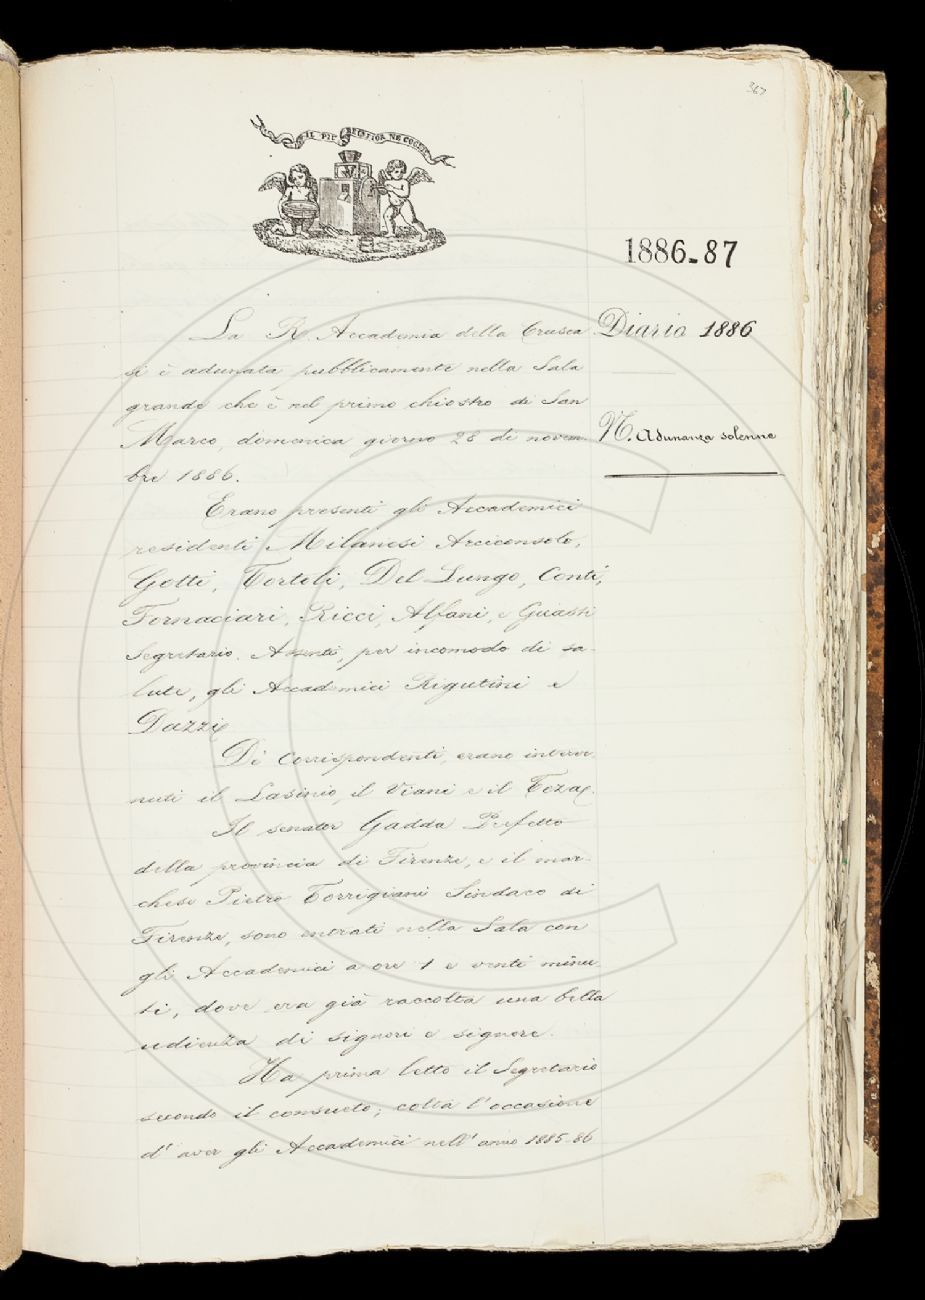 367
IL PIÙ BEL FIOR NE COGLIE
1886-87
Diario 1886
N. Adunanza solenne
La R. Accademia della Crusca
si è adunata pubblicamente nella Sala
grande che è nel primo chiostro di San
Marco, domenica giorno 28 di novem-
bre 1886.
Erano presenti gli Accademici
residenti Milanesi Arciconsolo,
Gotti, Tortoli, Del Lungo, Conti,
Fornaciari, Ricci, Alfani, e Guasti
Segretario. Assenti, per incomodo di sa-
lute, gli Accademici Rigutini e
Dazzi.
Di Corrispondenti, erano interve-
nuti il Lasinio, il Viani e il Teza.
Il senator Gadda Prefetto
della provincia di Firenze, e il mar-
chese Pietro Torrigiani Sindaco di
Firenze, sono entrati nella Sala con
gli Accademici a ore 1 e venti minu-
ti, dove era già raccolta una bella
udienza di signori e signore.
Ha prima letto il Segretario
secondo il consueto; colta l'occasione
d'aver gli Accademici nell'anno 1885-86